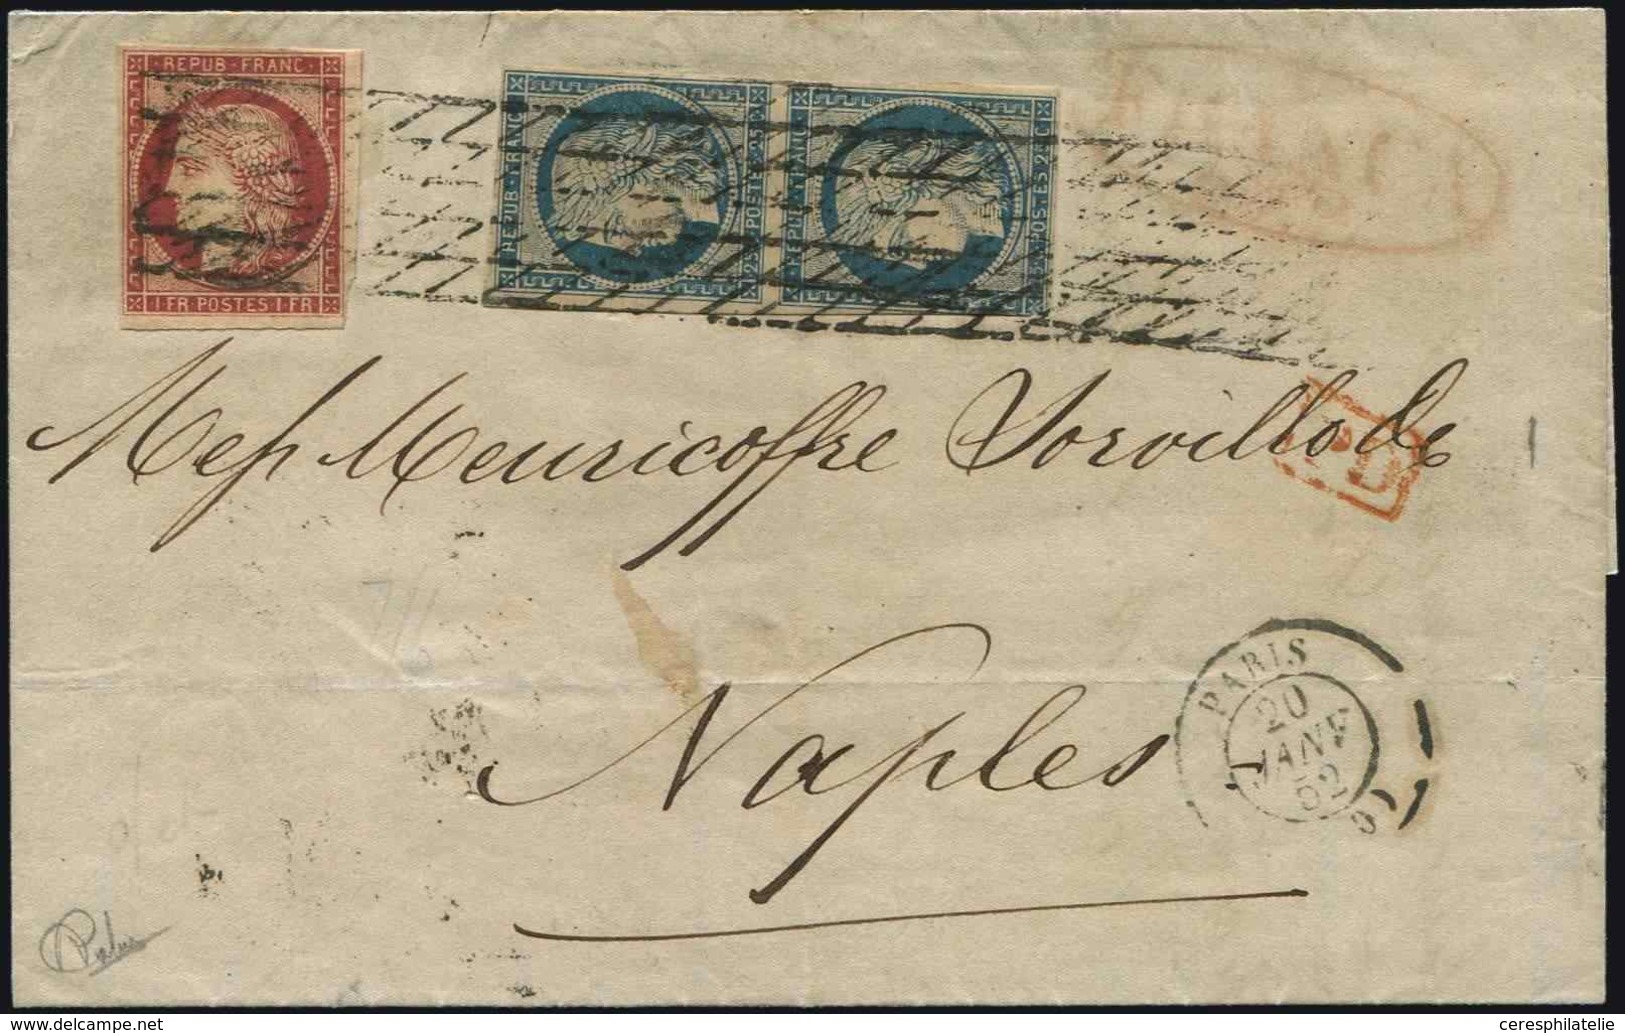 REPUB · FRANC
1 FR POSTES 1 FR
REPUB · FRANC
25 C POSTES 25 C
REPUB · FRANC
25 C POSTES 25 C
PD
Meuricoffre Sorvillo & Ce
Naples
PARIS
20
JANV
52
60
ceresphilatelie
www.delcampe.net